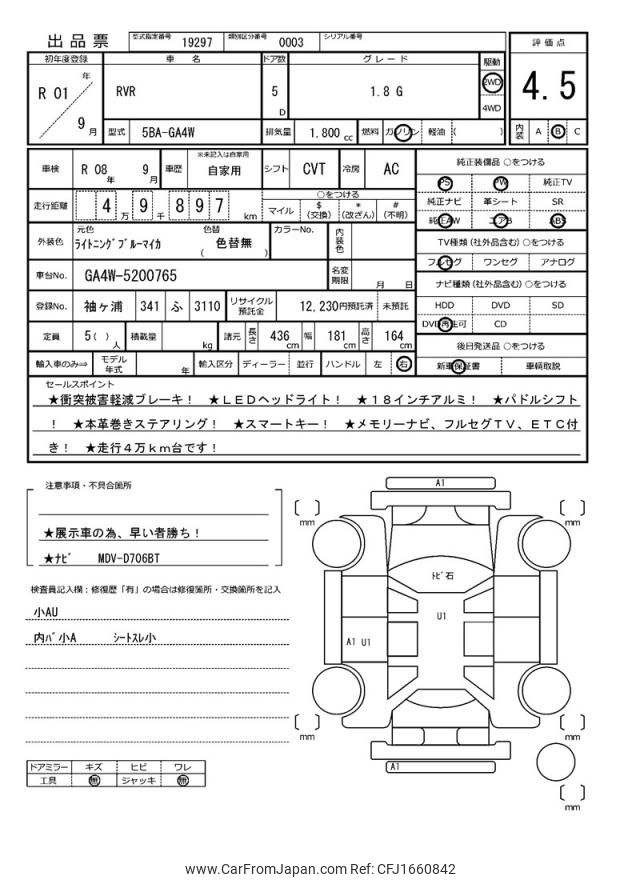 出品票
型式指定番号 19297 類別区分番号 0003 シリアル番号
評価点
初年度登録 車名 ドア数 グレード 駆動
R 01 年 9 月
RVR
5 D
1.8 G
2WD
4WD
4.5
型式 5BA-GA4W 排気量 1.800 cc 燃料 ガソリン 軽油 ( )
内装 A B C
車検 R 08 年 9 月 車歴 ※未記入は自家用 自家用 シフト CVT 冷房 AC
走行距離 4 万 9 千 8 9 7 km
○をつける
マイル $ (交換) * (改ざん) # (不明)
外装色 元色 ライトニングブルーマイカ 色替 ( 色替無 ) カラーNo. 内装色
車台No. GA4W-5200765 名変期限 月 日
登録No. 袖ヶ浦 341 ふ 3110 リサイクル預託金 12,230円預託済 未預託
定員 5( ) 人 積載量 kg 諸元 長さ 436 cm 幅 181 cm 高さ 164 cm
輸入車のみ⇒ モデル年式 年 輸入区分 ディーラー 並行 ハンドル 左 右
純正装備品 ○をつける
PS PW 純正TV
純正ナビ 革シート SR
純正AW エアB ABS
TV種類(社外品含む) ○をつける
フルセグ ワンセグ アナログ
ナビ種類(社外品含む) ○をつける
HDD DVD SD
DVD再生可 CD
後日発送品 ○をつける
新車保証書 車輌取説
セールスポイント
★衝突被害軽減ブレーキ! ★LEDヘッドライト! ★18インチアルミ! ★パドルシフト
! ★本革巻きステアリング! ★スマートキー! ★メモリーナビ、フルセグTV、ETC付
き! ★走行4万km台です!
注意事項・不具合箇所
★展示車の為、早い者勝ち!
★ナビ MDV-D706BT
検査員記入欄:修復歴「有」の場合は修復箇所・交換箇所を記入
小AU
内バ小A シートスレ小
ドアミラー キズ ヒビ ワレ
工具 無 ジャッキ 無
A1
mm
mm
トビ石
U1
A1 U1
mm
mm
A1
mm
www.CarFromJapan.com Ref: CFJ1660842